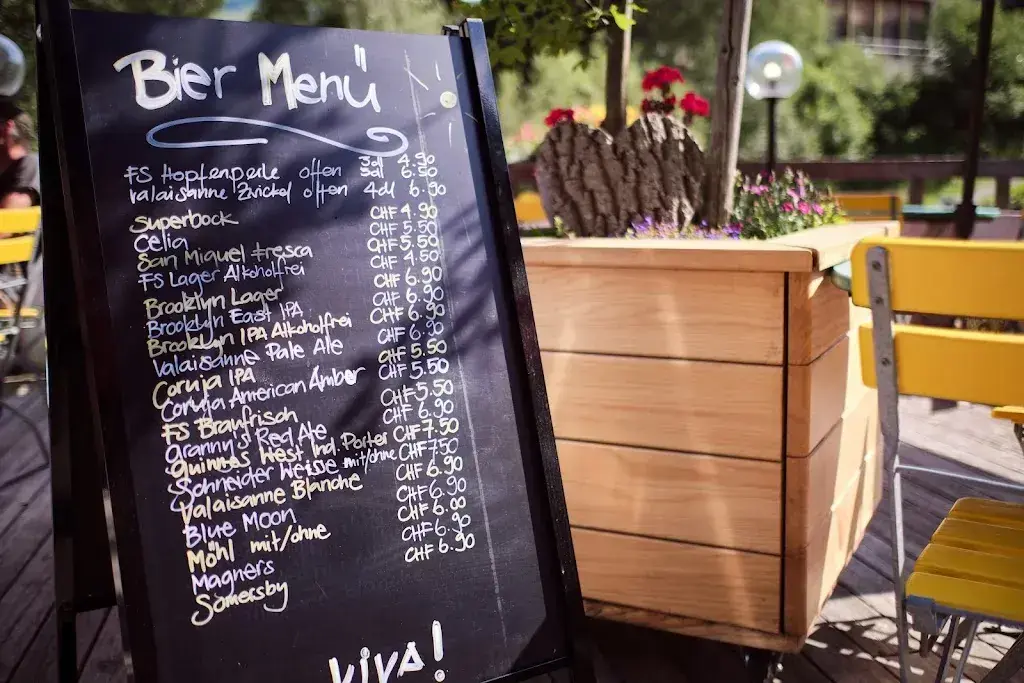 Bier Menü
FS Hopfenperle offen 3dl 4.90
5dl 6.50
Valaisanne Zwickel offen 4dl 6.90
Superbock CHF 4.90
Celia CHF 5.50
San Miguel Fresca CHF 5.50
FS Lager Alkoholfrei CHF 4.50
Brooklyn Lager CHF 6.90
Brooklyn East IPA CHF 6.90
Brooklyn IPA Alkoholfrei CHF 6.90
Valaisanne Pale Ale CHF 6.90
Coruja IPA CHF 5.50
Coruja American Amber CHF 5.50
FS Braufrisch CHF 5.50
Granny's Red Ale CHF 6.90
Guinnes West Ind. Porter CHF 7.50
Schneider Weisse mit/ohne CHF 7.50
Valaisanne Blanche CHF 6.90
Blue Moon CHF 6.90
Möhl mit/ohne CHF 6.00
Magners CHF 6.90
Somersby CHF 6.90
VIVA!